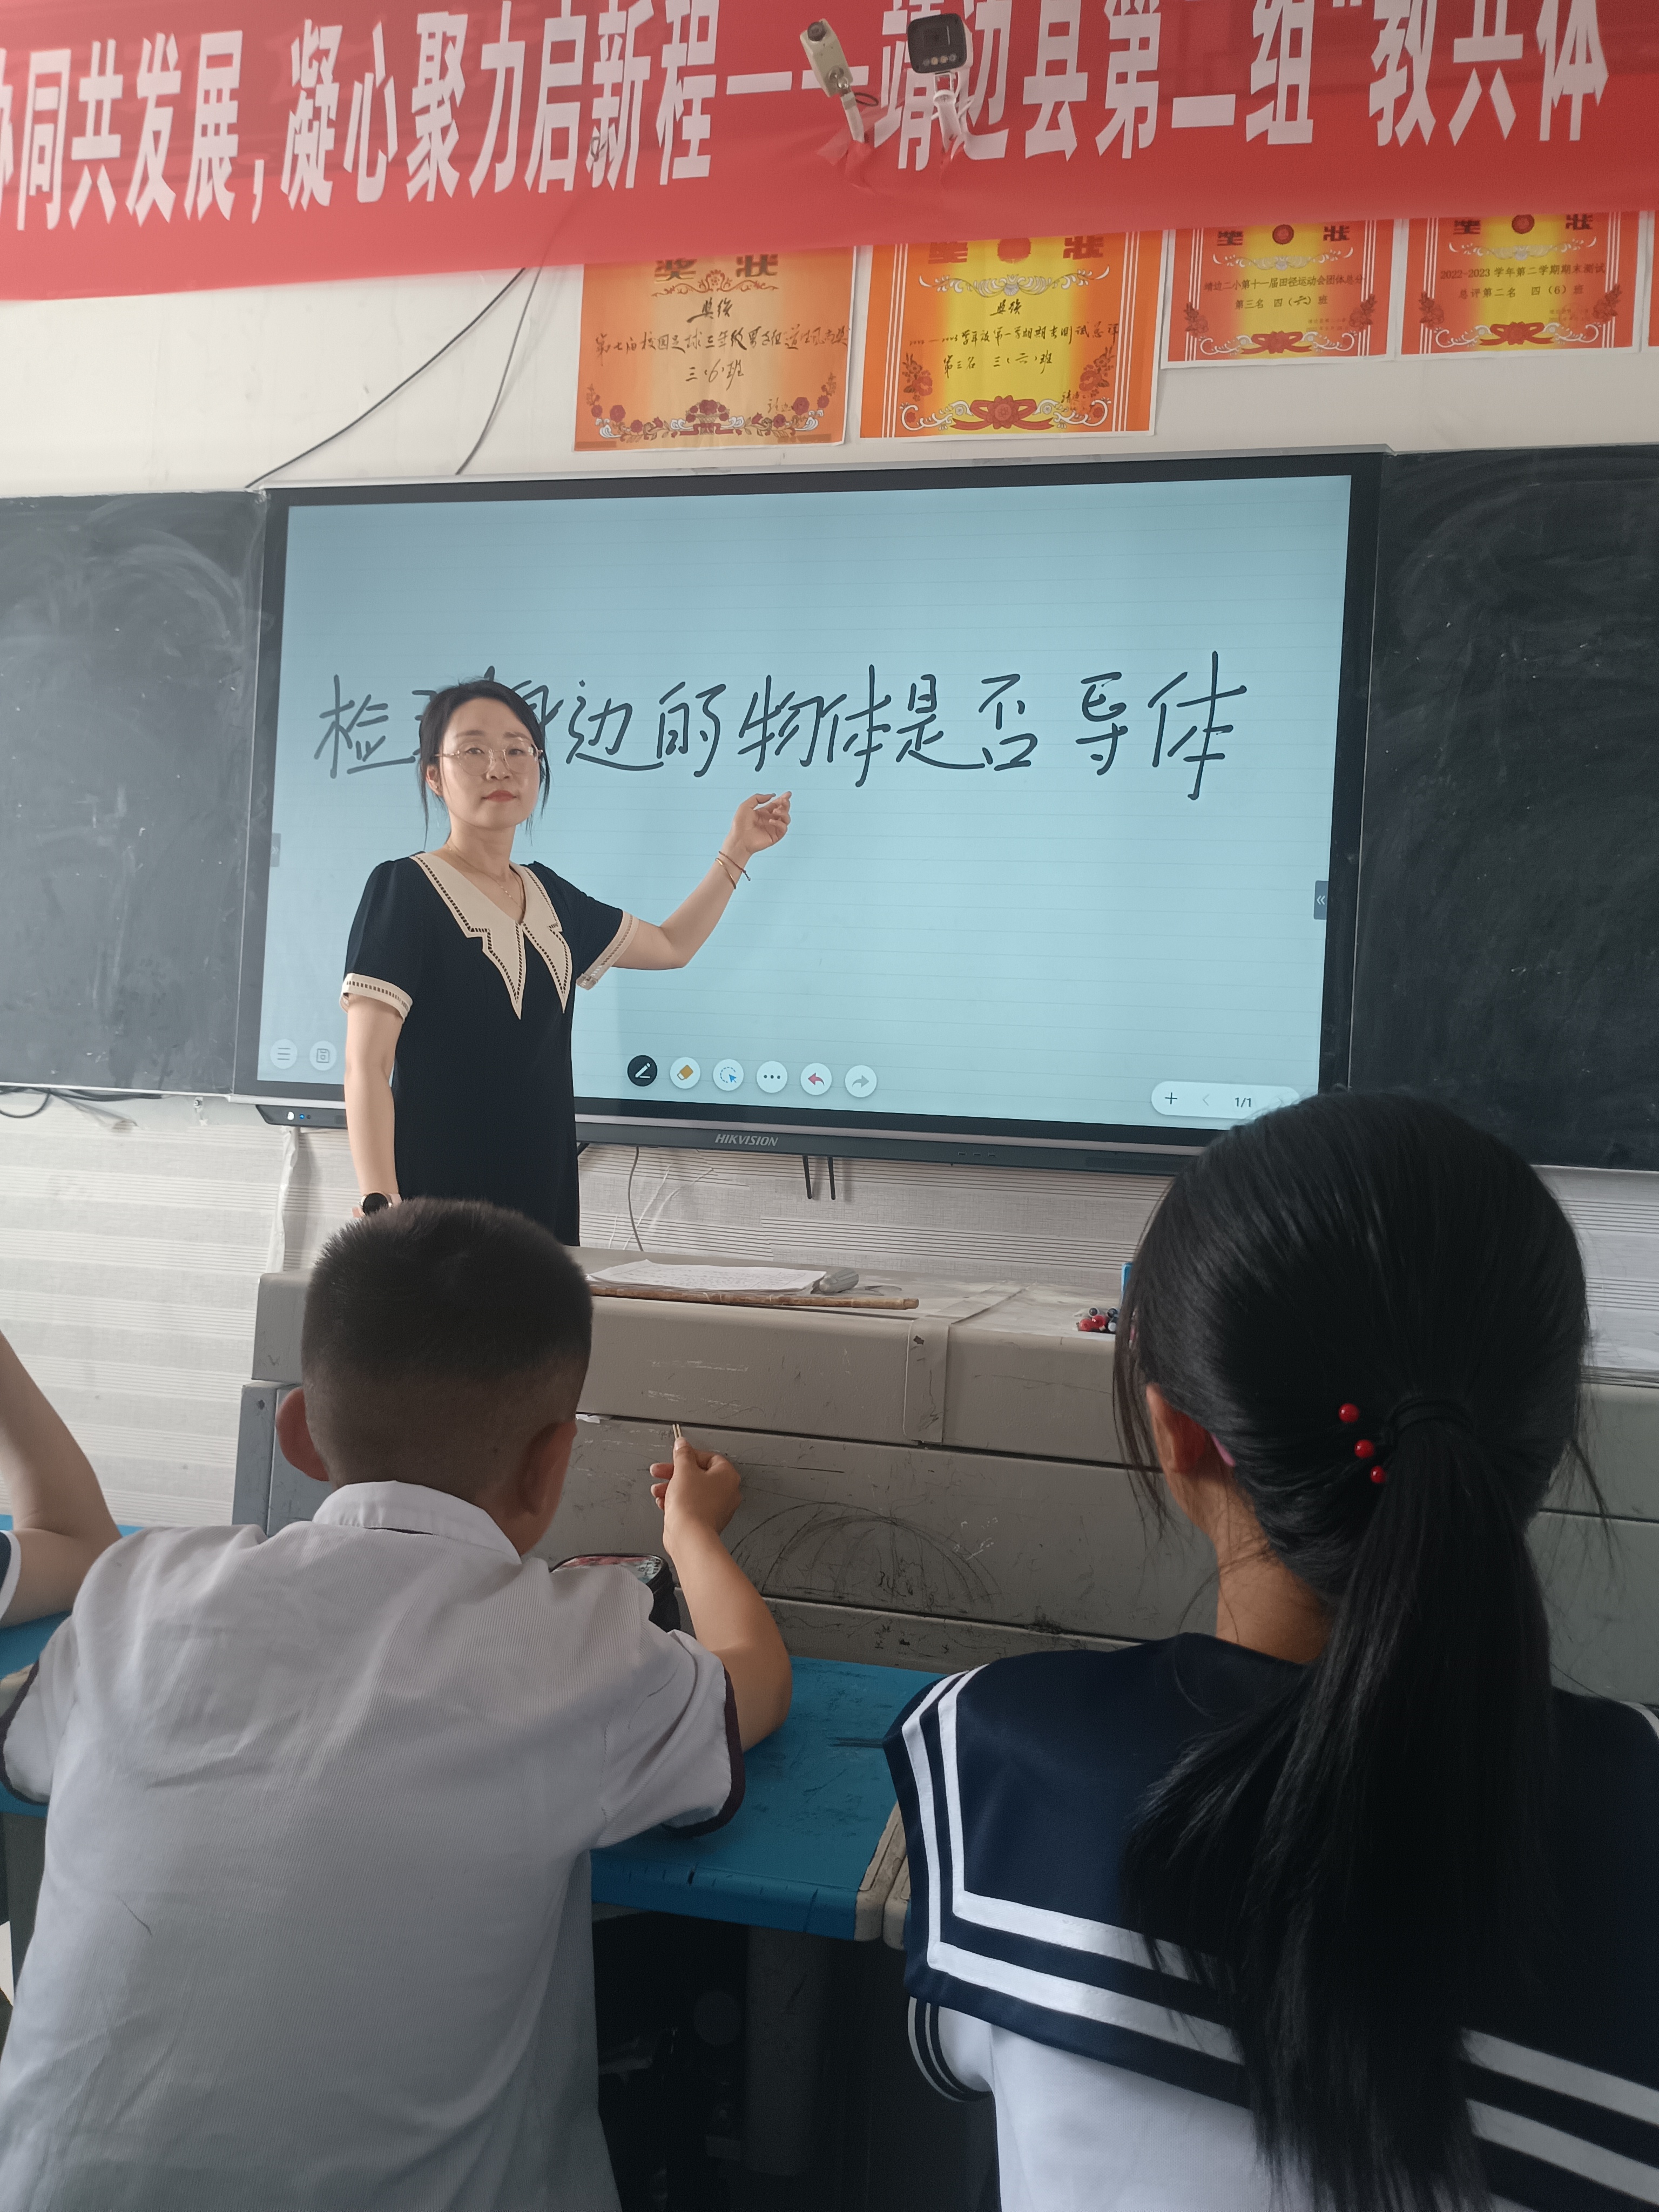 协同共发展,凝心聚力启新程——靖边县第二组“教共体
奖状
奖给
第七届校园足球三年级男子组道德风尚奖
三(6)班
奖状
奖给
学年度第一学期期末测试总评
第三名 三(六)班
奖状
靖边二小第十一届田径运动会团体总分
第三名 四(六)班
奖状
2022-2023学年第二学期期末测试
总评第二名 四(6)班
检 身边的物体是否导体
1/1
HIKVISION